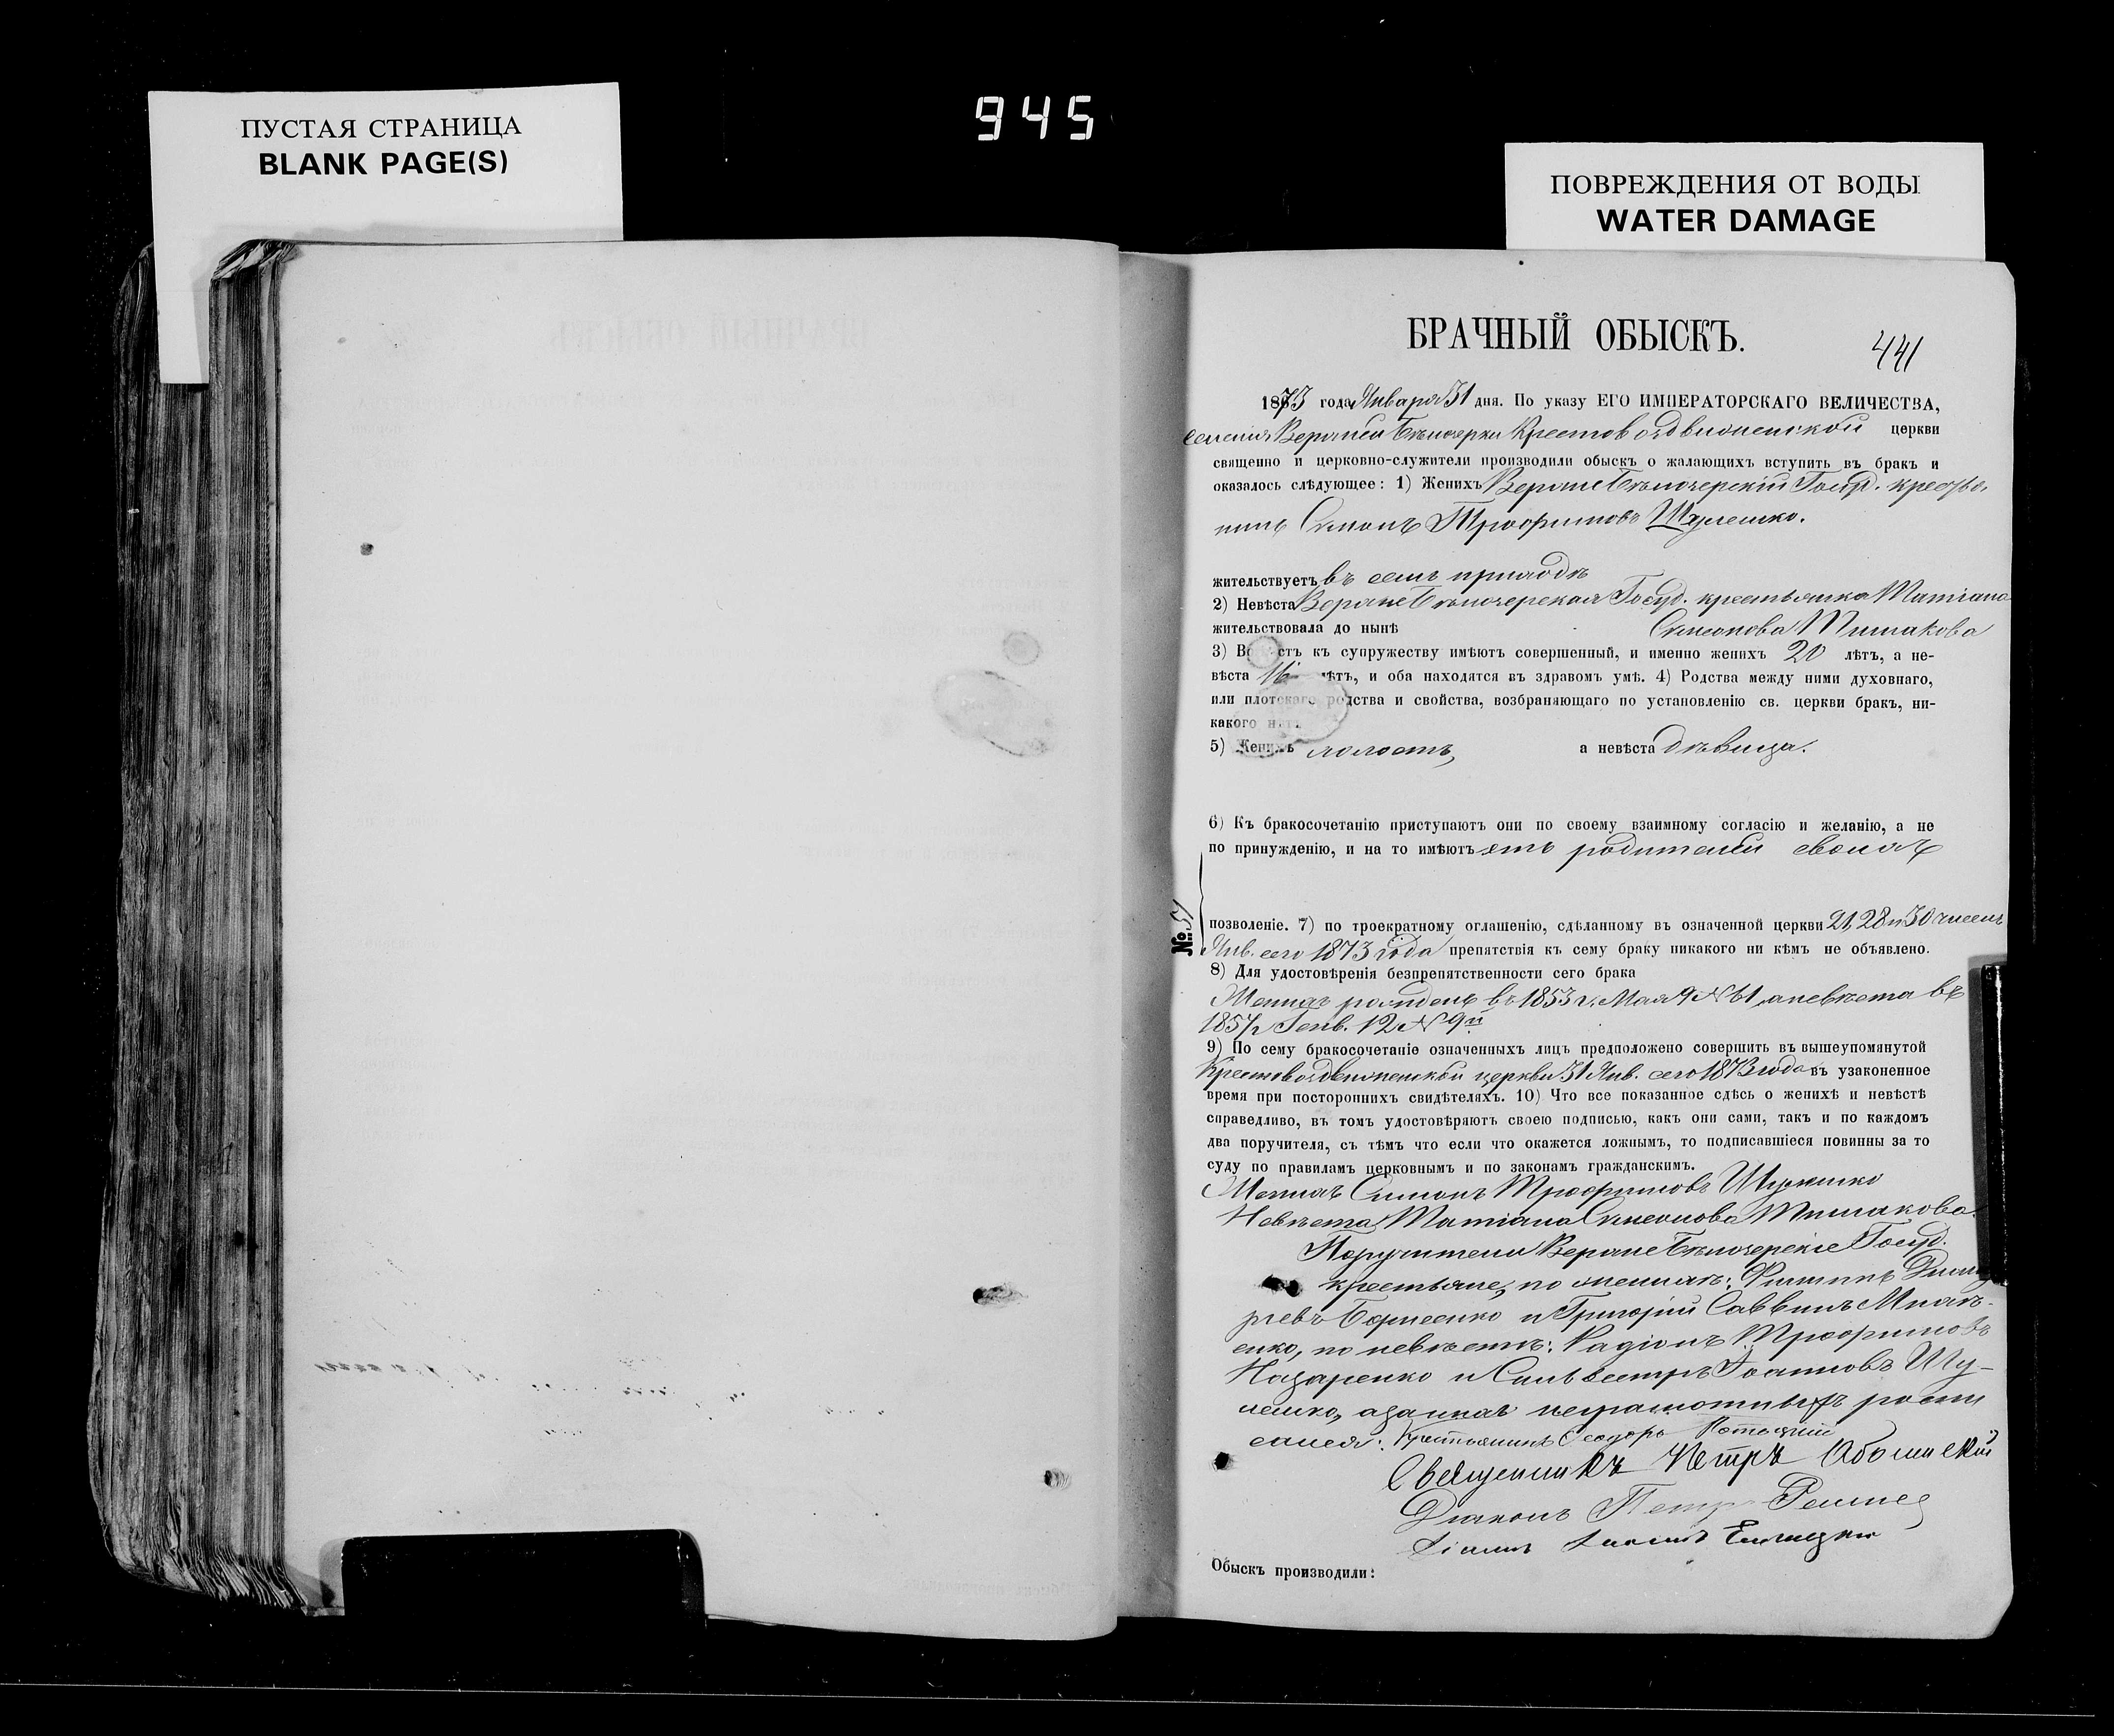 945
ПУСТАЯ СТРАНИЦА
BLANK PAGE(S)
ПОВРЕЖДЕНИЯ ОТ ВОДЫ
WATER DAMAGE
БРАЧНЫЙ ОБЫСКЪ.
441
1873 года Января 31 дня. По указу ЕГО ИМПЕРАТОРСКАГО ВЕЛИЧЕСТВА,
селенія Верхней Бѣлозерки Крестовоздвиженской церкви
священно и церковно-служители производили обыскъ о жалающихъ вступить въ бракъ и
оказалось слѣдующее: 1) Женихъ Верхнебѣлозерскій Госуд. крестья-
нинъ Симонъ Трофимовъ Шулешко.
жительствуетъ въ семъ приходѣ
2) Невѣста Верхнебѣлозерская Госуд. крестьянка Татіана
жительствовала до нынѣ Симеонова
3) В стъ къ супружеству имѣютъ совершенный, и именно женихъ 20 лѣтъ, а не-
вѣста 16 лѣтъ, и оба находятся въ здравомъ умѣ. 4) Родства между ними духовнаго,
или плотскаго родства и свойства, возбраняющаго по установленію св. церкви бракъ, ни-
какого нѣтъ.
5) Женихъ холостъ, а невѣста дѣвица.
6) Къ бракосочетанію приступаютъ они по своему взаимному согласію и желанію, а не
по принужденію, и на то имѣютъ отъ родителей своихъ
№ 51
позволеніе. 7) по троекратному оглашенію, сдѣланному въ означенной церкви 21, 28 и 30 чиселъ
Янв. сего 1873 года препятствія къ сему браку никакого ни кѣмъ не объявлено.
8) Для удостовѣренія безпрепятственности сего брака
Женихъ рожденъ въ 1853 г. Мая 9 № 61, а невѣста въ
1857 г. Генв. 12 № 9й
9) По сему бракосочетаніе означенныхъ лицъ предположено совершить въ вышеупомянутой
Крестовоздвиженской церкви 31 Янв. сего 1873 года въ узаконенное
время при постороннихъ свидѣтеляхъ. 10) Что все показанное сдѣсь о женихѣ и невѣстѣ
справедливо, въ томъ удостовѣряютъ своею подписью, какъ они сами, такъ и по каждомъ
два поручителя, съ тѣмъ что если что окажется ложнымъ, то подписавшіеся повинны за то
суду по правиламъ церковнымъ и по законамъ гражданскимъ.
Женихъ Симонъ Трофимовъ Шулешко
Невѣста Татіана Симеонова
Поручители Верхнебѣлозерскіе Госуд.
крестьяне, по женихѣ: Филиппъ
Борисенко и Григорій Саввинъ
енко, по невѣстѣ: Радіонъ Трофимовъ
Назаренко и Сильвестръ Іоанновъ Шу-
лешко, а за нихъ неграмотныхъ роспи
сался: Крестьянинъ Ѳеодоръ
Священникъ Петръ
Діаконъ Петръ
Обыскъ производили: